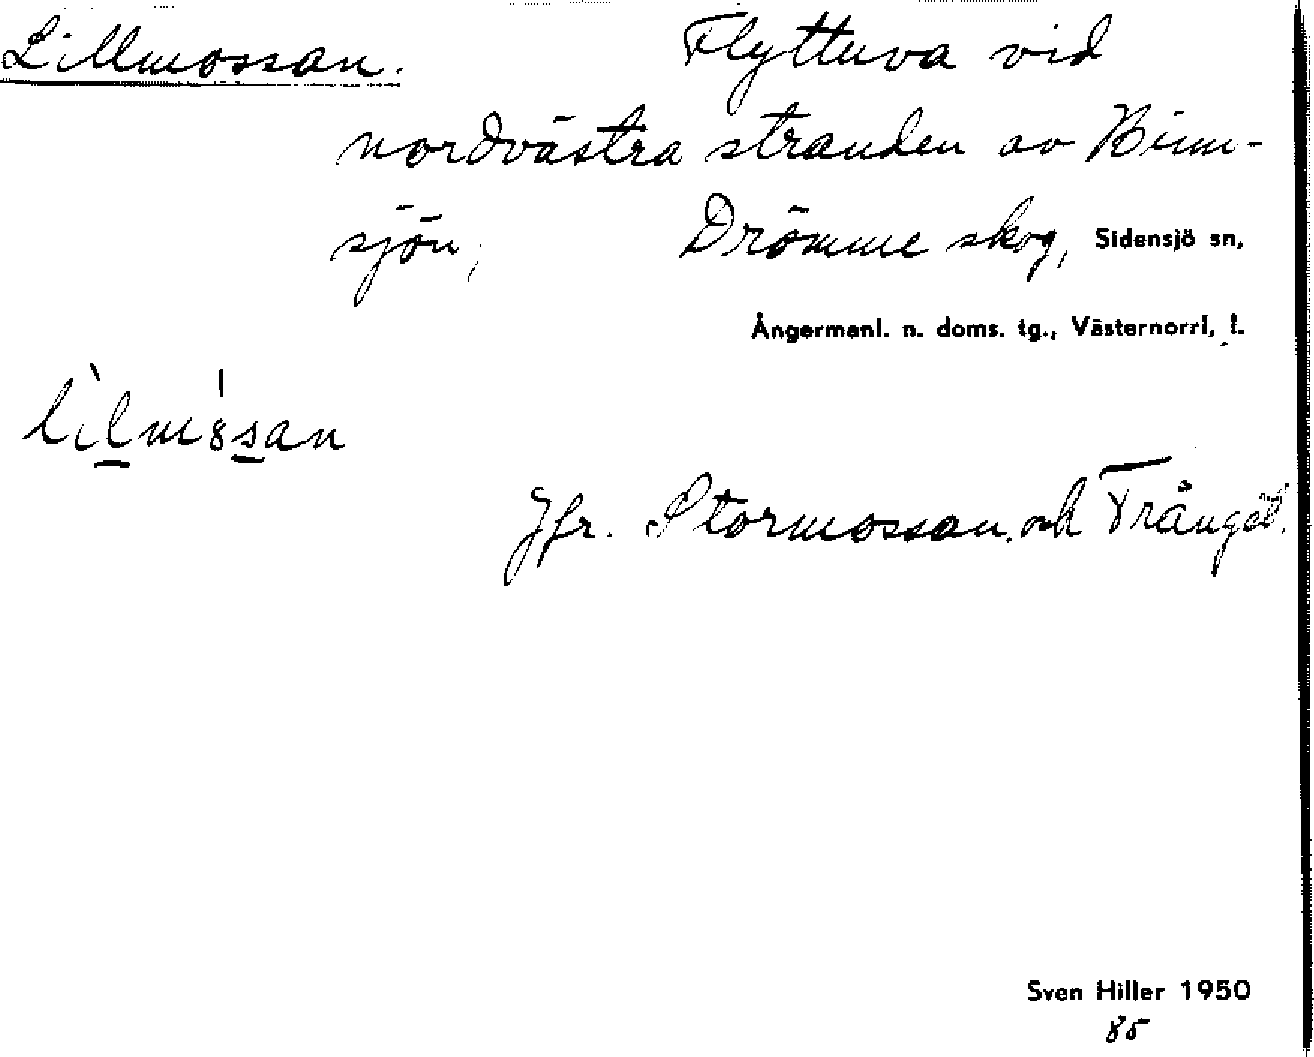 Lillmossan. Flyttuva vid
nordvästra stranden av Binn-
sjön, Drömme skog, Sidensjö sn,
Ångermanl. n. doms. tg., Västernorrl. l.
lìlmɷ́san
Jfr. Stormossan och
Sven Hiller 1950
85